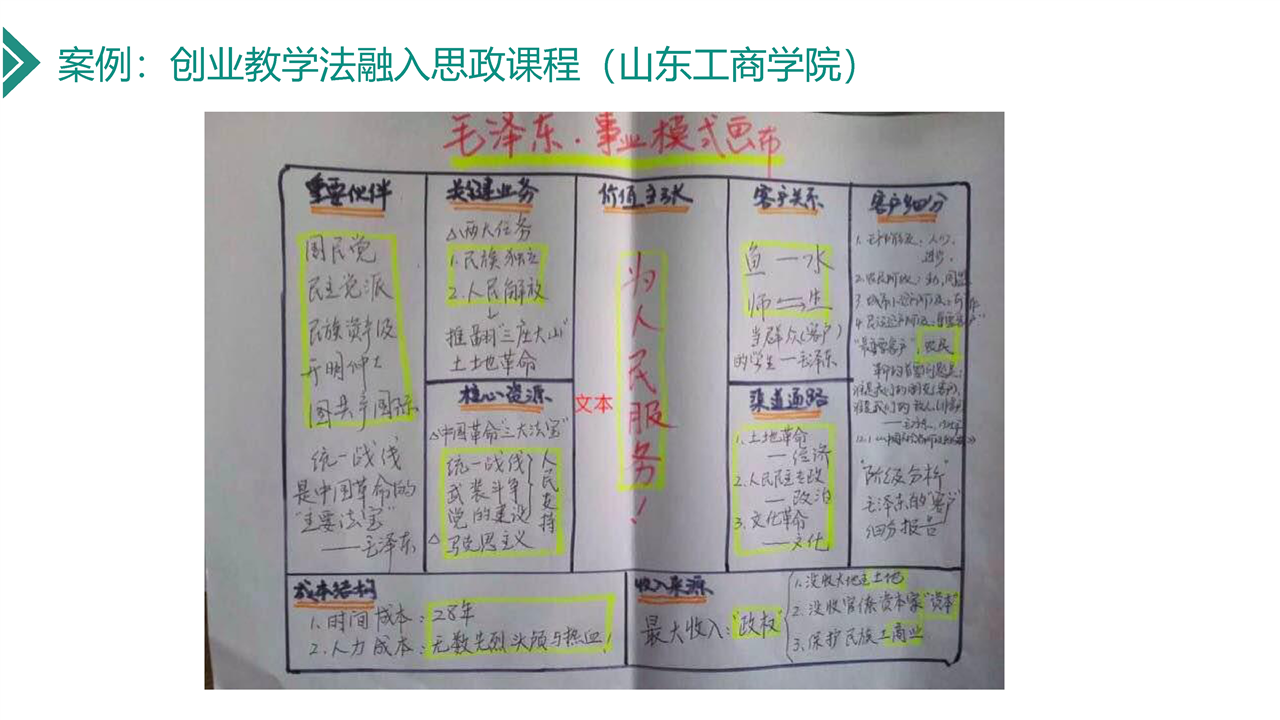 案例：创业教学法融入思政课程（山东工商学院）
毛泽东·事业模式画布
重要伙伴
国民党
民主党派
民族资产阶级
开明绅士
国共产国际
统一战线
是中国革命的
"主要法宝"
——毛泽东
关键业务
△两大任务
1.民族独立
2.人民解放
↓
推翻"三座大山"
土地革命
核心资源
△中国革命"三大法宝"
统一战线
武装斗争
党的建设
人民支持
△马克思主义
价值主张
为人民服务！
文本
客户关系
鱼—水
师⇌生
当群众(客户)
的学生—毛泽东
渠道通路
1.土地革命
—经济
2.人民民主专政
—政治
3.文化革命
——文化
客户细分
进步.
"最重要客户"：农民
"阶级分析"
毛泽东的"客户"
细分报告
成本结构
1.时间成本：28年
2.人力成本：无数先烈头颅与热血！
收入来源
最大收入："政权"
1.没收大地主土地
2.没收官僚资本家"资本"
3.保护民族工商业